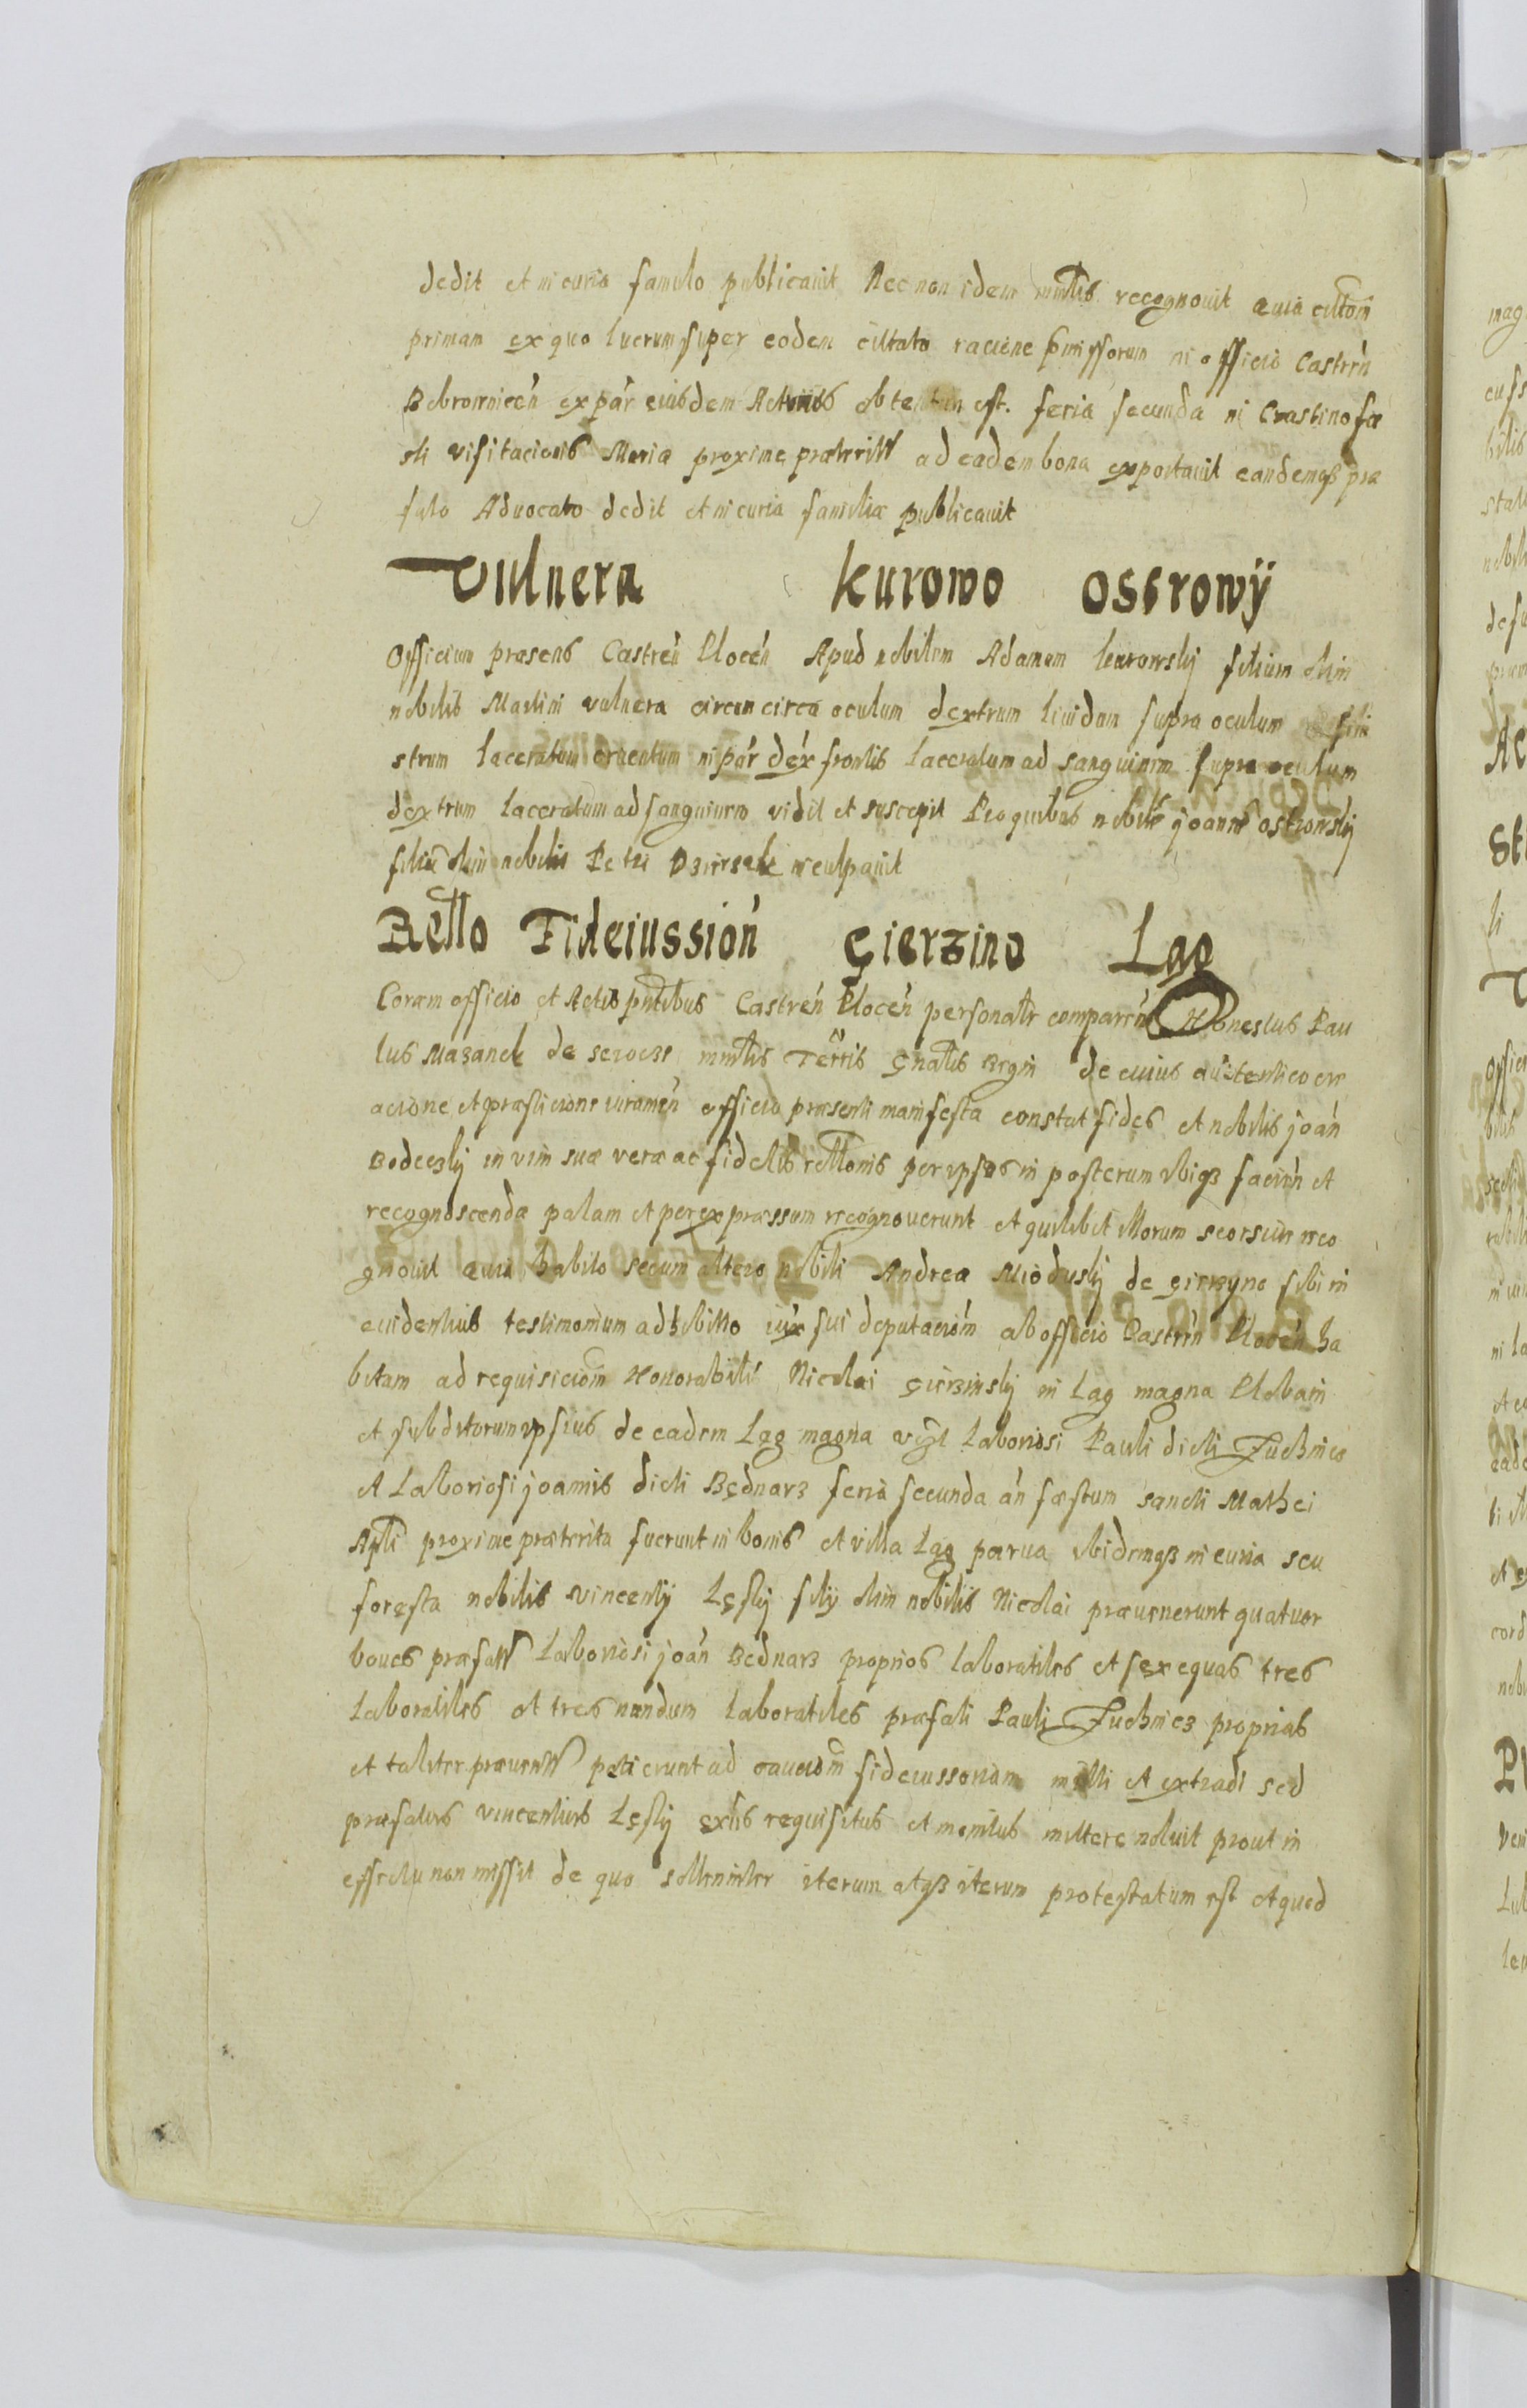 dedit et in curia famulo publicauit Nec non idem mnlis recognouit quia citom
primam ex quo lucrum super eodem citato racione pmissorum in officio Castren
Bobrownicen ex par eiusdem Actoris obtentum est. feria secunda in Crastino fæ
sti visitacionis Mariæ proxime præterit ad eadem bona exportauit eandemqз præ
fato Aduocato dedit et in curia familiæ publicauit
Vulnera Kurowo Ostrowÿ
Officium præsens Castren Plocen Apud nobilem Adamum kurowskÿ filium olim
nobilis Martini vulnera circum circa oculum dextrum liuidum supra oculum sini
strum laceratum cruentum in par dex frontis laceratum ad sanguinem supra oculum
dextrum laceratum ad sanguinem vidit et suscepit Pro quibus nobile joanne ostrowskÿ
filiu olim nobilis Petri inculpauit
Retto Fideiussion Çierzino Lag
Coram officio et Actis pntibus Castren Plocen personatr comparen Honestus Pau
lus Mazanek de seroczk mnlis Terris Gnalis Regni de cuius autentico cre
acione et præsticione iuramen officio præsenti manifesta constat fides et nobilis joan
Bodeczkÿ in vim suæ veræ ac fidelis rettonis per ipsos in posterum vbiqз facien et
recognoscenda palam et per expræssum recognouerunt et quilibet illorum seorsim reco
gnouit quia habito secum altero nobili Andrea Mioduskÿ de çierzyno sibi in
euidentius testimonium adhibitto iux sui deputaciom ab officio Castren Plocen ha
bitam ad requisiciom Honorabilis Nicolai çierzinskÿ in Lag magna Plebani
et subditorum ipsius de eadem Lag magna vΖt Laboriosi Pauli dicti Zuchnicz
et Laboriosi joannis dicti Bednarz feria secunda an fæstum sancti Mathei
Apli proxime præterita fuerunt in bonis et villa Lag parua ibidemqз in curia seu
foresta nobilis vincentÿ Lęskÿ filÿ olim nobilis Nicolai præuenerunt quatuor
boues præfatt Laboriosi joan Bednarz proprios laboratiles et sex equas tres
laboratiles et tres nundum laboratiles præfati Pauli Zuchnicz proprias
et taliter præuentt petierunt ad cauciom fideiussoriam mitti et extradi sed
præfatus vincentius Lęskÿ ex his requisitus et monitus mittere noluit prout in
effectu non missit de quo sollenniter iterum atqз iterum protestatum est et quod